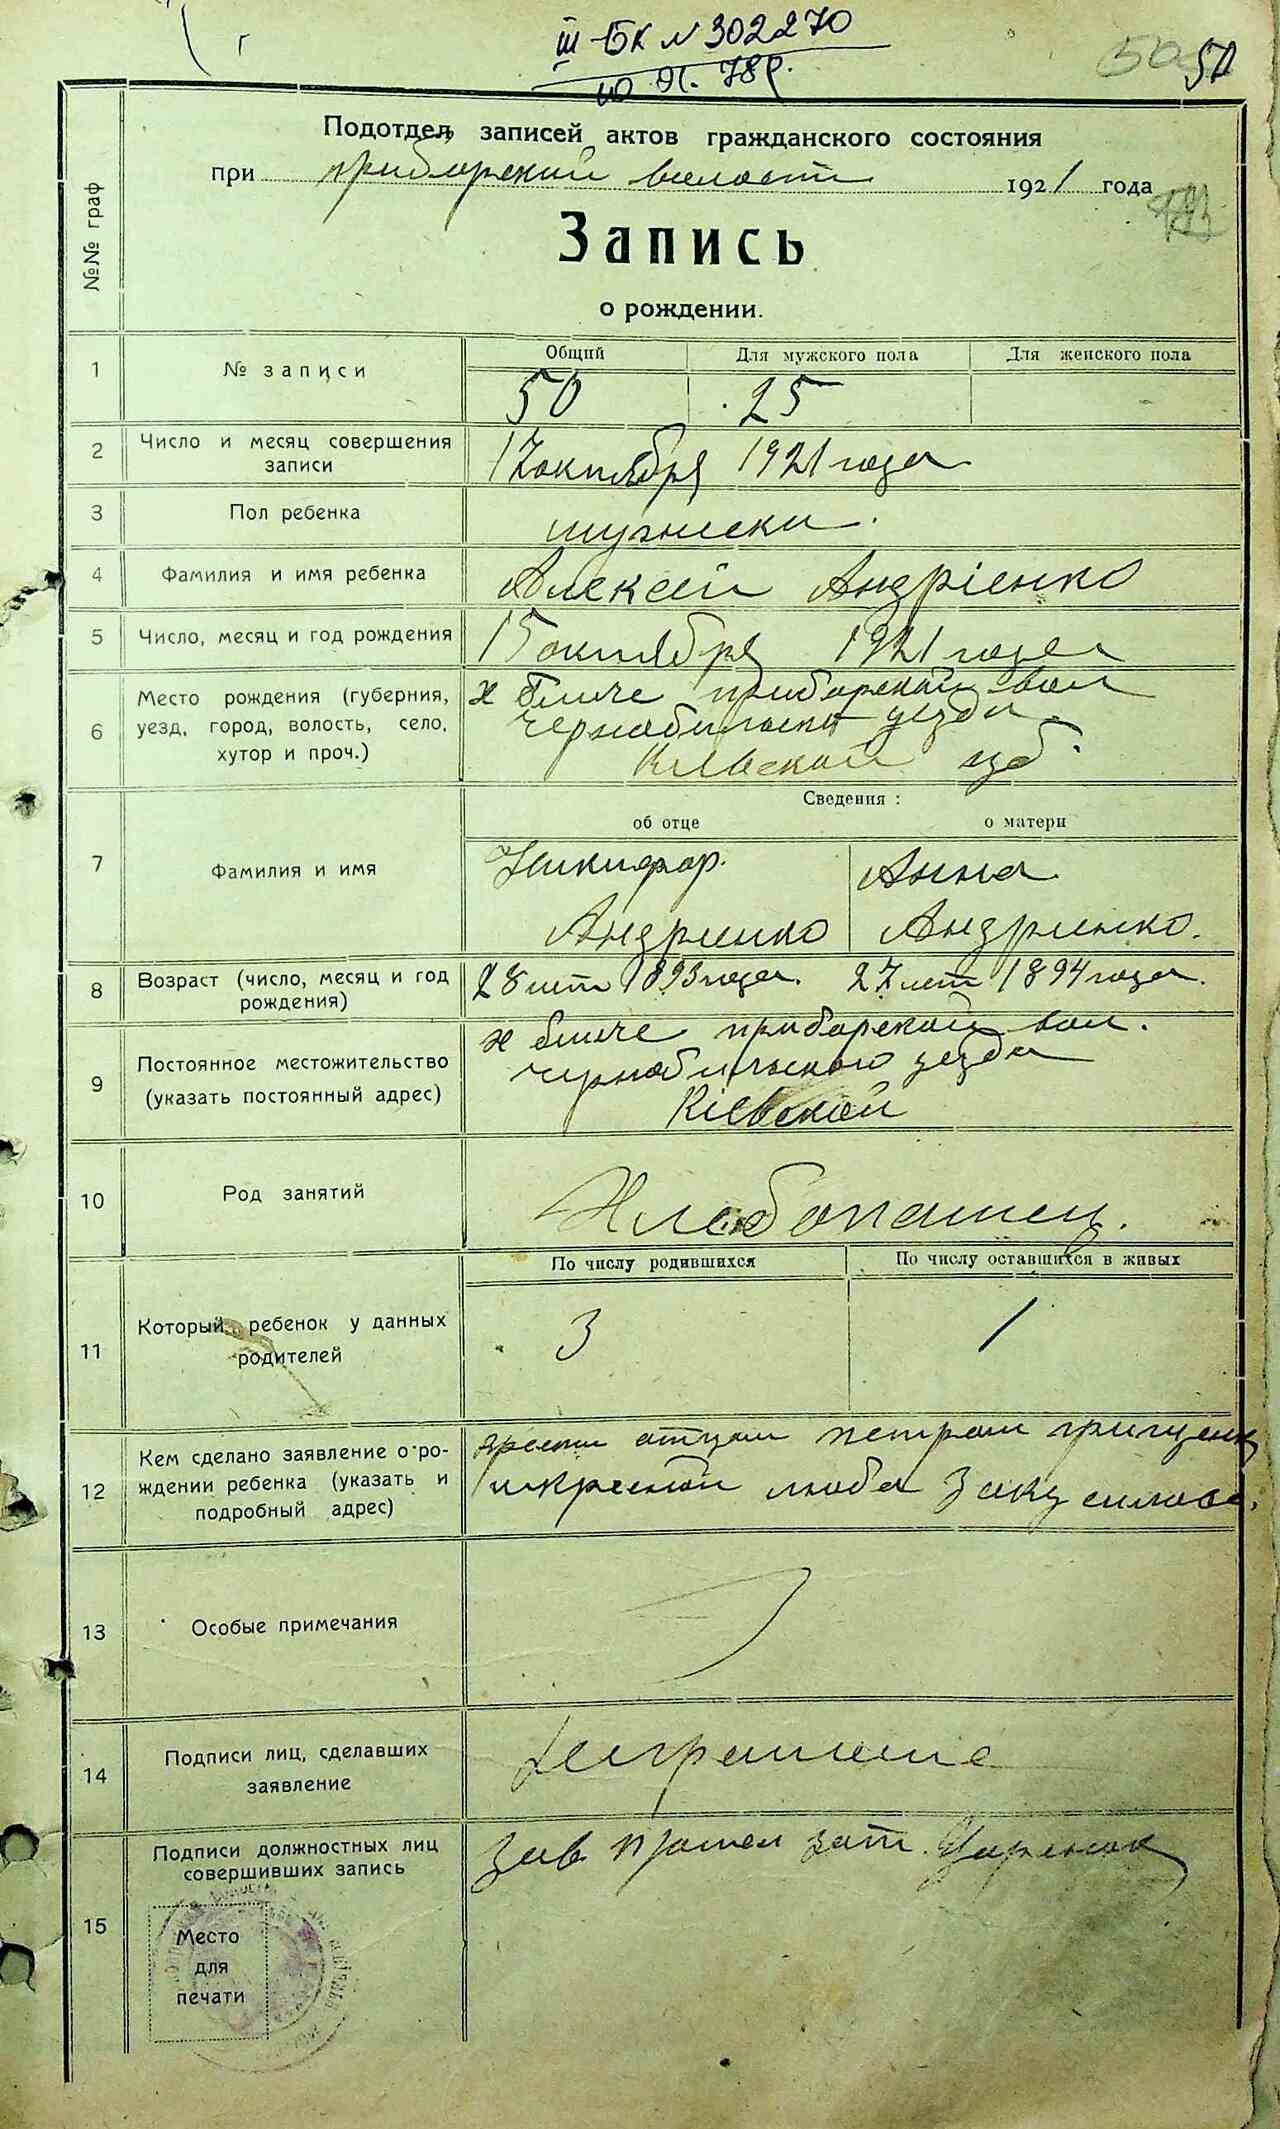 III-БК № 302270
50
Подотдел записей актов гражданского состояния
при приборской волости 1921 года
№№ граф
Запись
о рождении.
1 № записи
Общий Для мужского пола Для женского пола
50 25
2 Число и месяц совершения
записи
17 октября 1921 года
3 Пол ребенка
мужски.
4 Фамилия и имя ребенка
Алексей Андріенко
5 Число, месяц и год рождения
15 октября 1921 года
6 Место рождения (губерния,
уезд, город, волость, село,
хутор и проч.)
х приборской вол
уезда
Кіевской губ.
Сведения :
об отце о матери
7 Фамилия и имя
Никифор. Анна
Андриенко Андриенко.
8 Возраст (число, месяц и год
рождения)
28 лет 1893 года. 27 лет 1894 года.
9 Постоянное местожительство
(указать постоянный адрес)
х приборской вол.
чернобильского уезда
Кіевской
10 Род занятий
Хлебопашец.
По числу родившихся По числу оставшихся в живых
11 Который ребенок у данных
родителей
3 1
12 Кем сделано заявление о ро-
ждении ребенка (указать и
подробный адрес)
отцом петром грищенк
люба Закусилова.
13 Особые примечания
14 Подписи лиц, сделавших
заявление
15 Подписи должностных лиц
совершивших запись
Зав
Место
для
печати